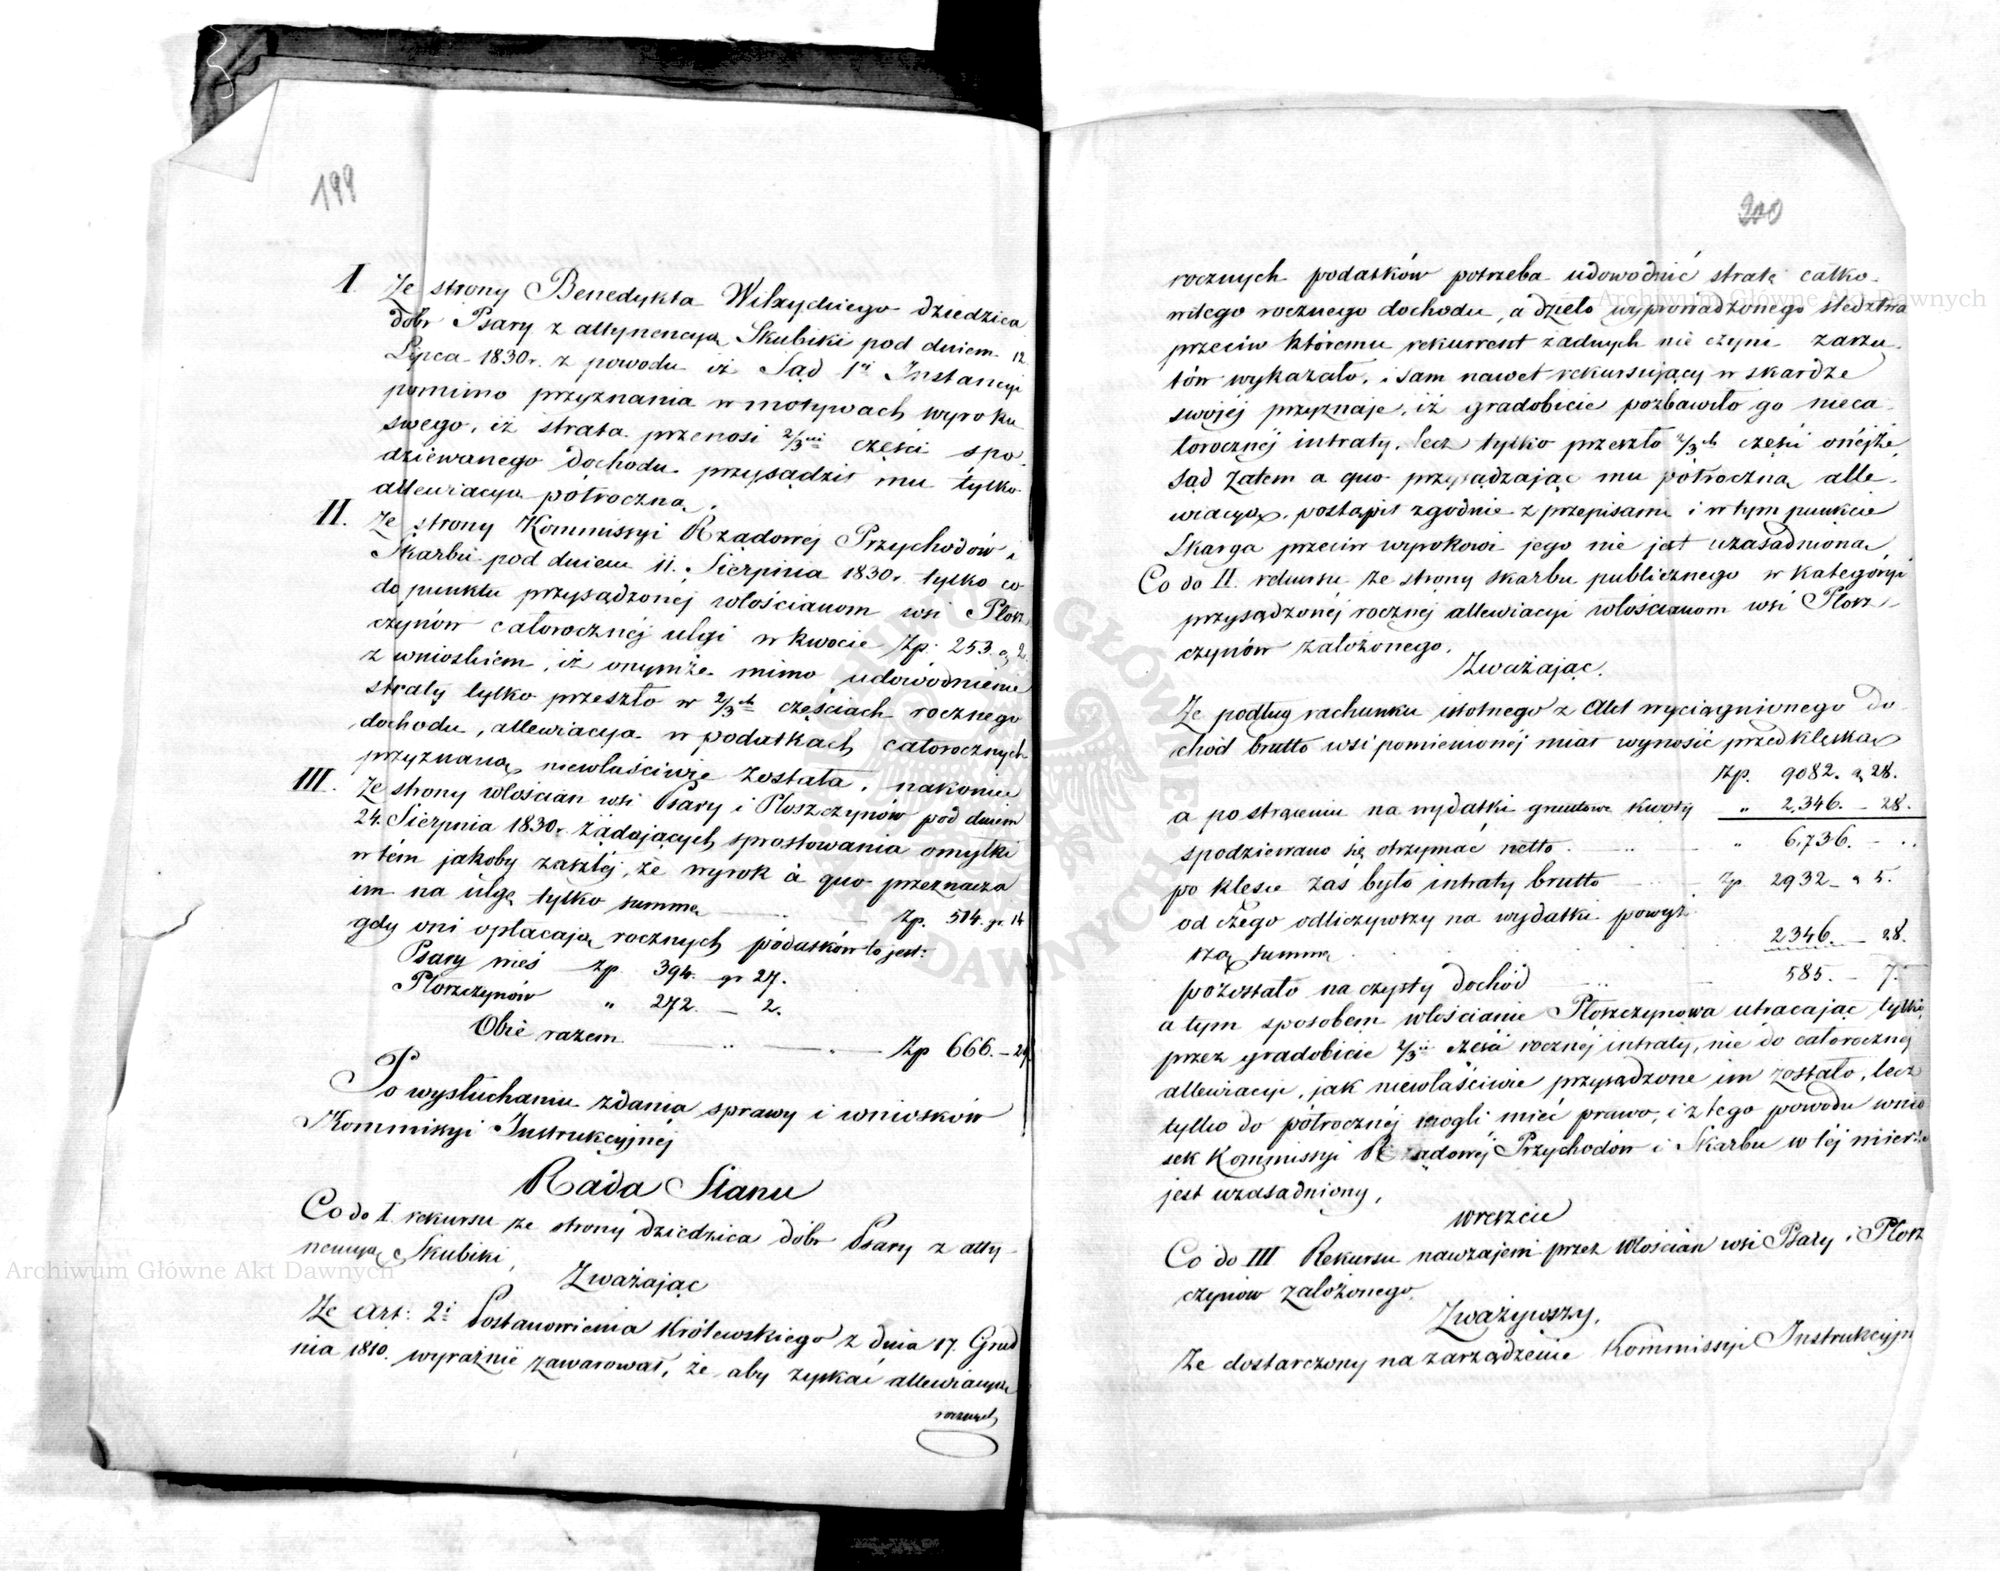 199
I. Ze strony Benedykta Wilxyckiego dziedzica
dóbr Psary z attynencyą Skubiki pod dniem 12
Lipca 1830 r. z powodu iż Sąd 1ej Instancyi
pomimo przyznania w motywach wyroku
swego, iż strata przenosi 2/3cie części spo-
dziewanego dochodu przysądził mu tylko
allewiacyą półroczną,
II. Ze strony Kommissyi Rządowej Przychodów i
Skarbu pod dniem 11. Sierpnia 1830 r. tylko co
do punktu przysądzonej włościanom wsi Płosz-
czynów całorocznej ulgi w kwocie Zp: 253. g 2.
z wnioskiem, iż onymże mimo udowodnienie
straty tylko przeszło w 2/3ch częściach rocznego
dochodu, allewiacya w podatkach całorocznych
przyznaną niewłaściwie została, nakoniec
III. Ze strony włościan wsi Psary i Płoszczynów pod dniem
24. Sierpnia 1830 r. żądających sprostowania omyłki
w tém jakoby zaszłej, że wyrok à quo przeznacza
im na ulgę tylko summę Zp. 514. gr. 14
gdy oni opłacają rocznych podatków to jest:
Psary wieś Zp 394. gr 27.
Płoszczynów " 272. — 2.
Obie razem Zp 666. — 29
Po wysłuchaniu zdania sprawy i wniosków
Kommissyi Instrukcyjnej
Rada Stanu
Co do I. rekursu ze strony dziedzica dóbr Psary z atty-
nencyą Skubiki,
Zważając
Że Art: 2i Postanowienia Królewskiego z dnia 17. Grud
nia 1810. wyraźnie zawarował, że aby zyskać allewiacyą
rocznych
200
rocznych podatków potrzeba udowodnić stratę całko-
witego rocznego dochodu, a dzieło wyprowadzonego śledztwa
przeciw któremu rekurrent żadnych nie czyni zarzu-
tów wykazało, i sam nawet rekursujący w skardze
swojéj przyznaje, iż gradobicie pozbawiło go nieca-
łorocznéj intraty, lecz tylko przeszło 2/3ch części onéjże,
sąd zatem a quo przysądzając mu półroczną alle-
wiacyą, postąpił zgodnie z przepisami i w tym punkcie
Skarga przeciw wyrokowi jego nie jest uzasadniona,
Co do II. rekursu ze strony skarbu publicznego w kategoryi
przysądzonéj rocznej allewiacyi włościanom wsi Płosz-
czynów założonego,
Zważając,
Że podług rachunku istotnego z Akt wyciągnionego do-
chód brutto wsi pomienionéj miał wynosić przed klęską
Zp. 9082. g 28.
a po strąceniu na wydatki gruntowe kwoty " 2,346. — 28.
spodziewano się otrzymać netto " 6,736. — "
po klęsce zaś było intraty brutto Zp. 2932 — g 5.
od czego odliczywszy na wydatki powyż-
szą summę 2346. — 28.
pozostało na czysty dochód 585. — 7.
a tym sposobem włościanie Płoszczynowa utracając tylko
przez gradobicie 2/3cie części rocznéj intraty, nie do całorocznéj
allewiacyi, jak niewłaściwie przysądzone im zostało, lecz
tylko do półrocznéj mogli mieć prawo, i z tego powodu wnio
sek Kommissyi Rządowéj Przychodów i Skarbu w téj mierze
jest uzasadniony,
wreszcie
Co do III Rekursu nawzajem przez Włościan wsi Psary i Płosz
czynów założonego,
Zważywszy,
Że dostarczony na zarządzenie Kommissyi Instrukcyjn
Archiwum Główne Akt Dawnych
Archiwum Główne Akt Dawnych
ARCHIWUM GŁÓWNE AKT DAWNYCH